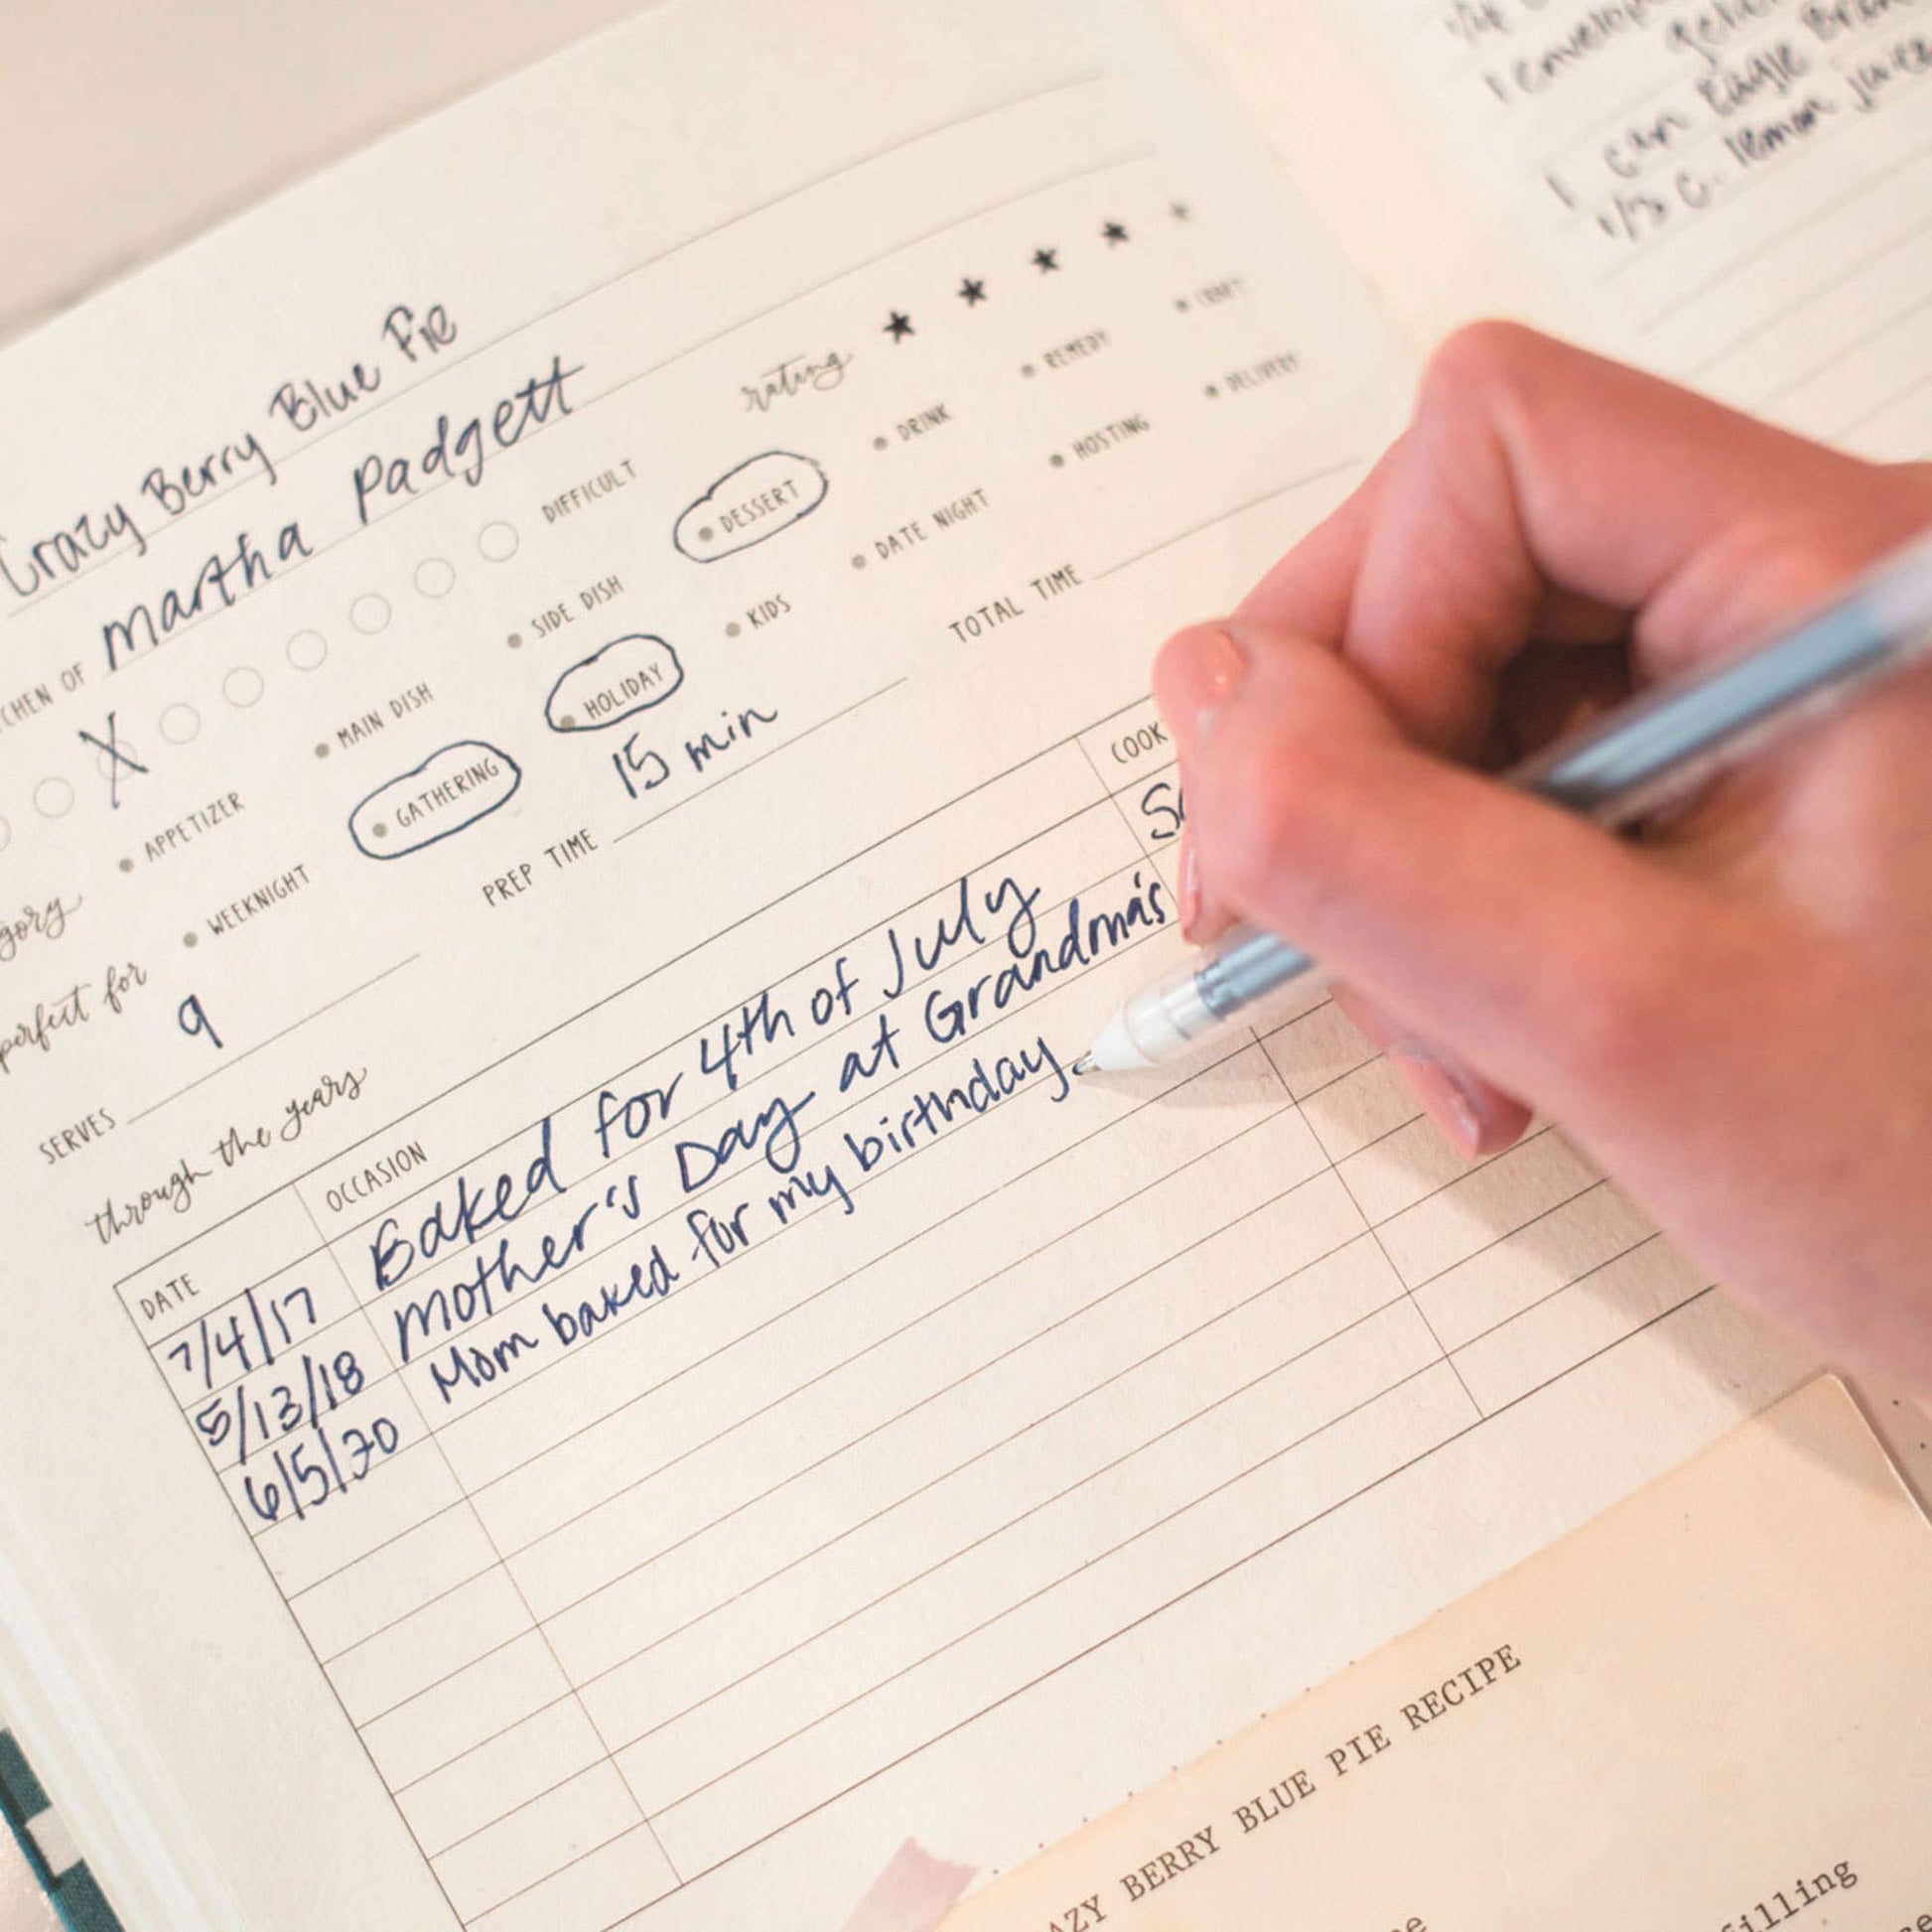 Crazy Berry Blue Pie
CHEN OF Martha Padgett
rating ★ ★ ★ ★ ★
X DIFFICULT
gory • APPETIZER • MAIN DISH • SIDE DISH • DESSERT • DRINK • REMEDY • CRAFT
perfect for • WEEKNIGHT • GATHERING • HOLIDAY • KIDS • DATE NIGHT • HOSTING • DELIVERY
SERVES 9 PREP TIME 15 min TOTAL TIME
through the years
DATE OCCASION COOK
7/4/17 Baked for 4th of July
5/13/18 Mother's Day at Grandma's
6/5/20 Mom baked for my birthday
1/4
1 envelope
1 can Eagle Bran
1/3 c. lemon juice
AZY BERRY BLUE PIE RECIPE
illing